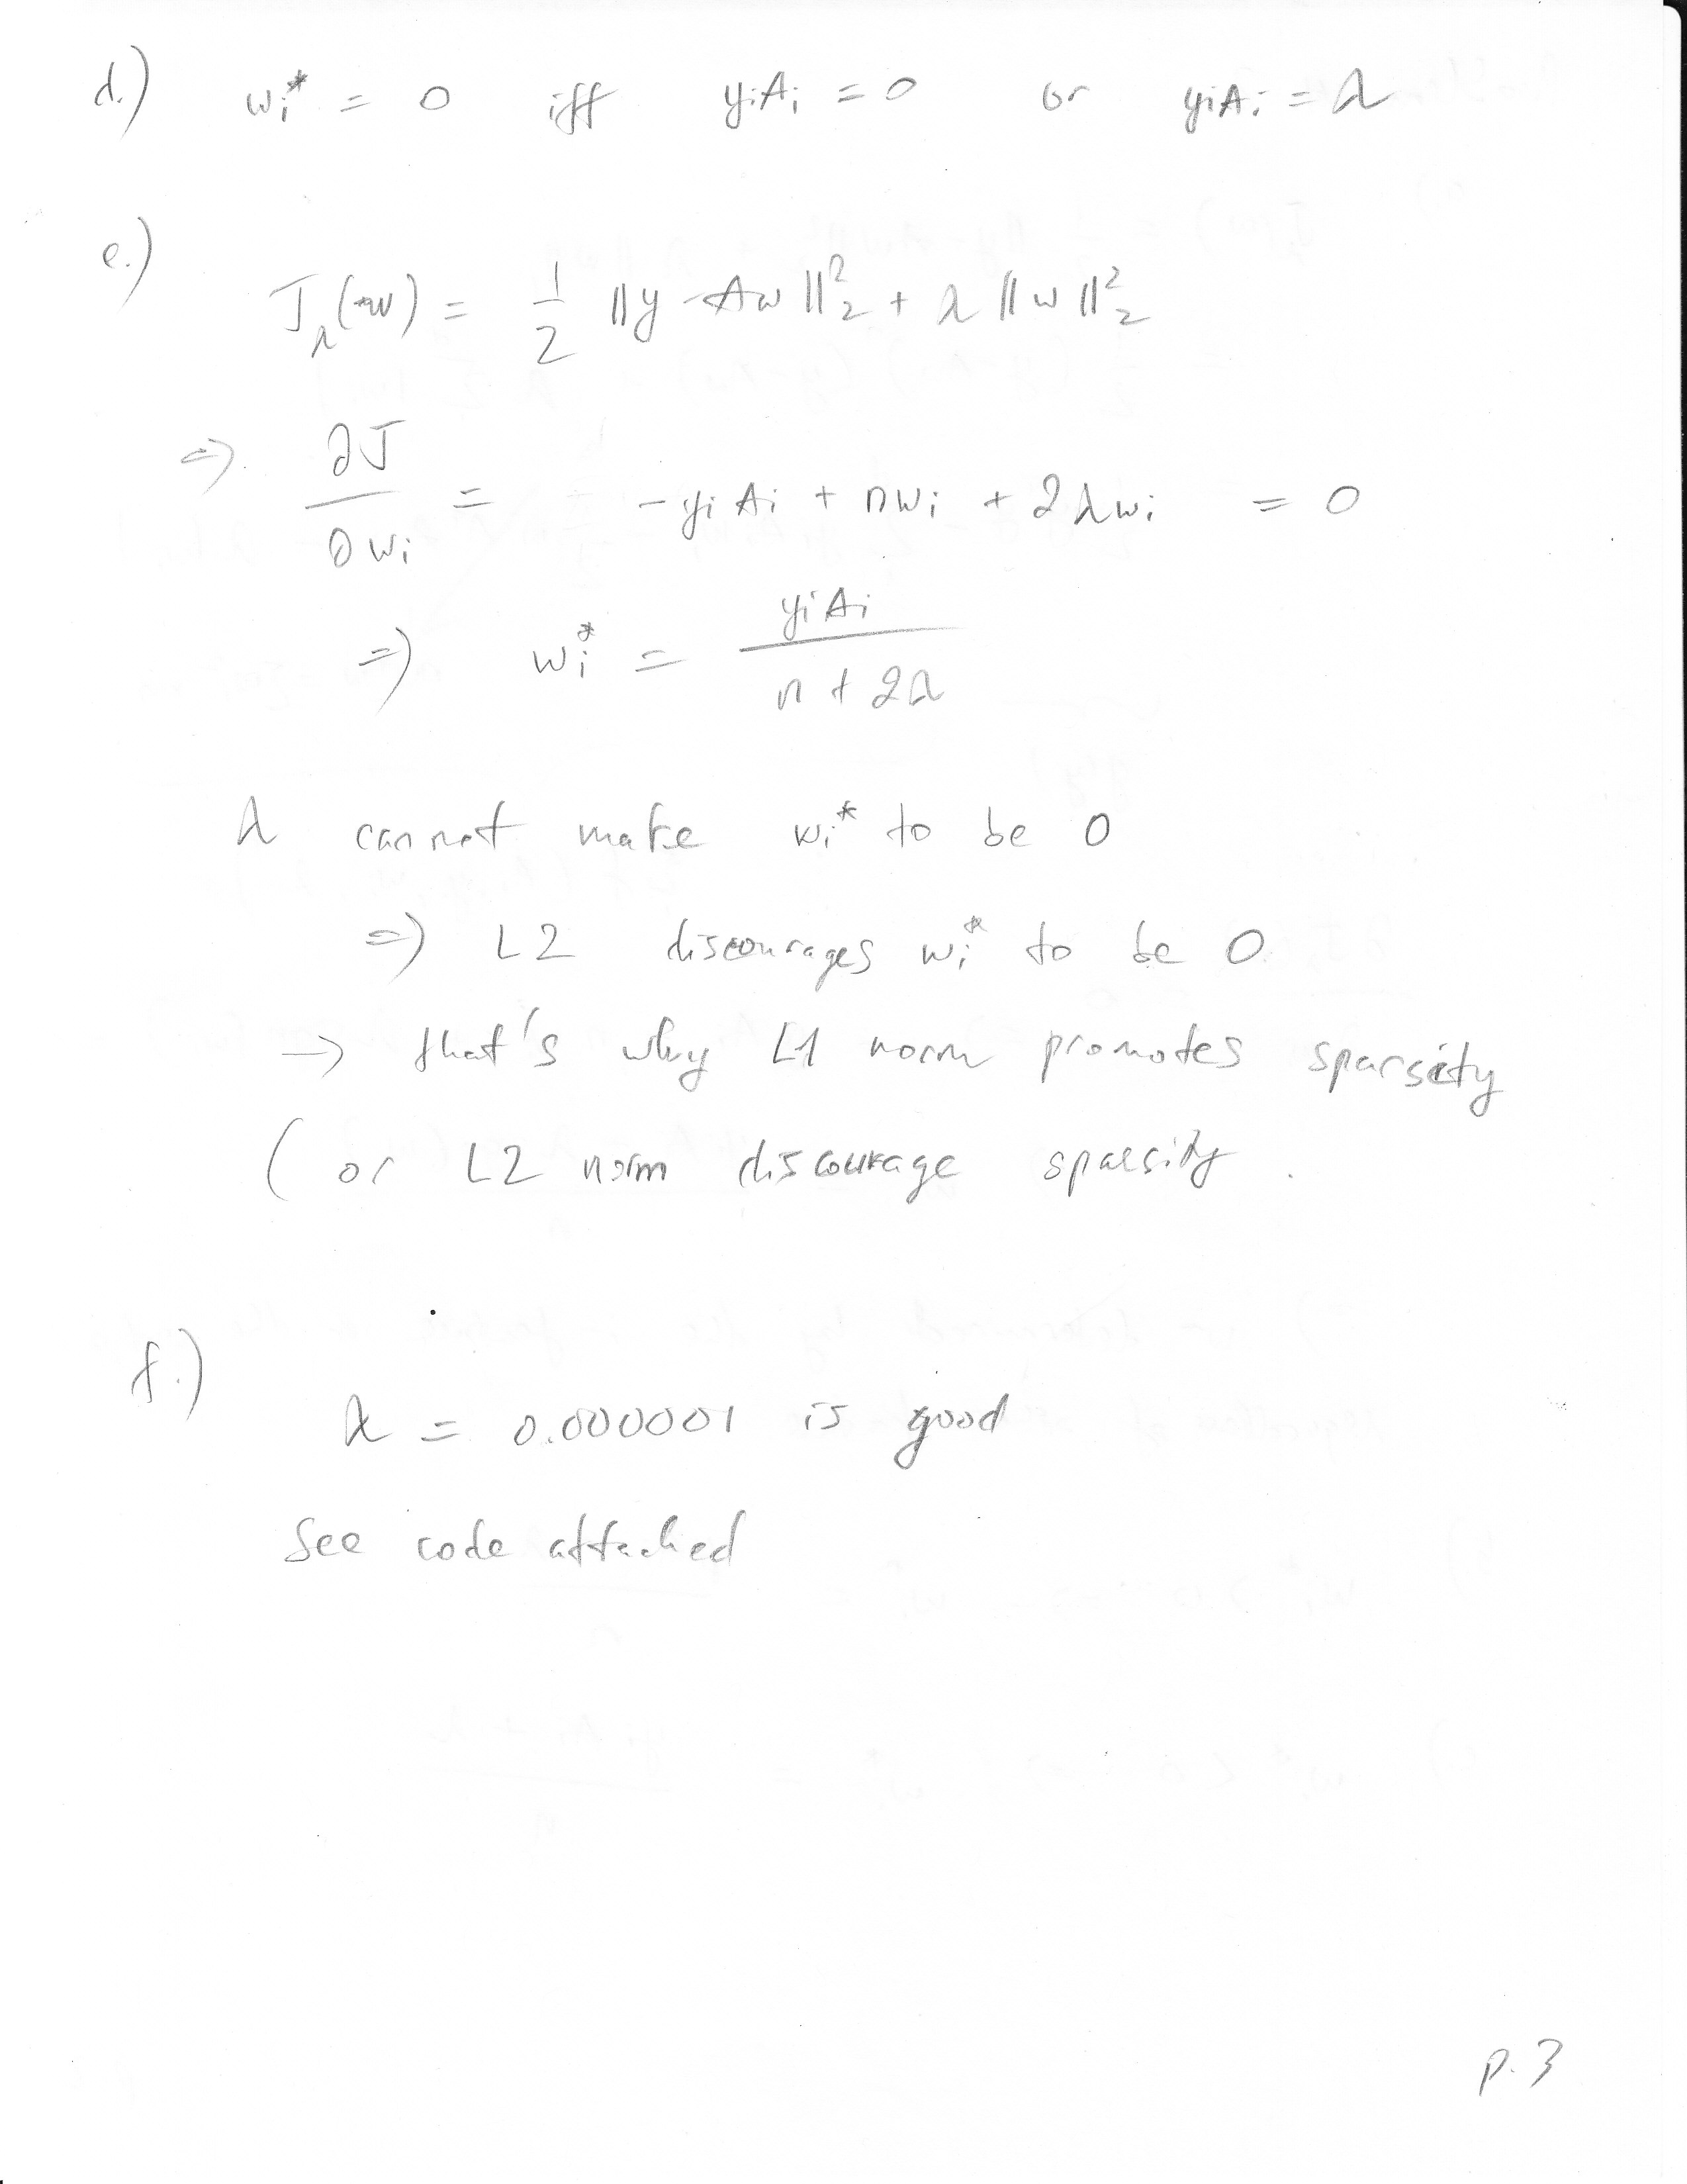 d.) wi* = 0 iff yiAi = 0 or yiAi = λ
e.)
Jλ(w) = 1/2 ||y - Aw||²₂ + λ ||w||²₂
=> ∂J/∂wi = - yiAi + nwi + 2λwi = 0
=> wi* = yiAi / n + 2λ
λ cannot make wi* to be 0
=> L2 discourages wi* to be 0
-> that's why L1 norm promotes sparsity
( or L2 norm discourage sparsity .
f.)
λ = 0.000001 is good
See code attached
p.3